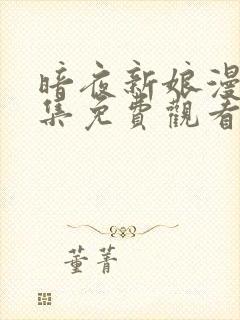 暗夜新娘漫
集免費觀看
董菁